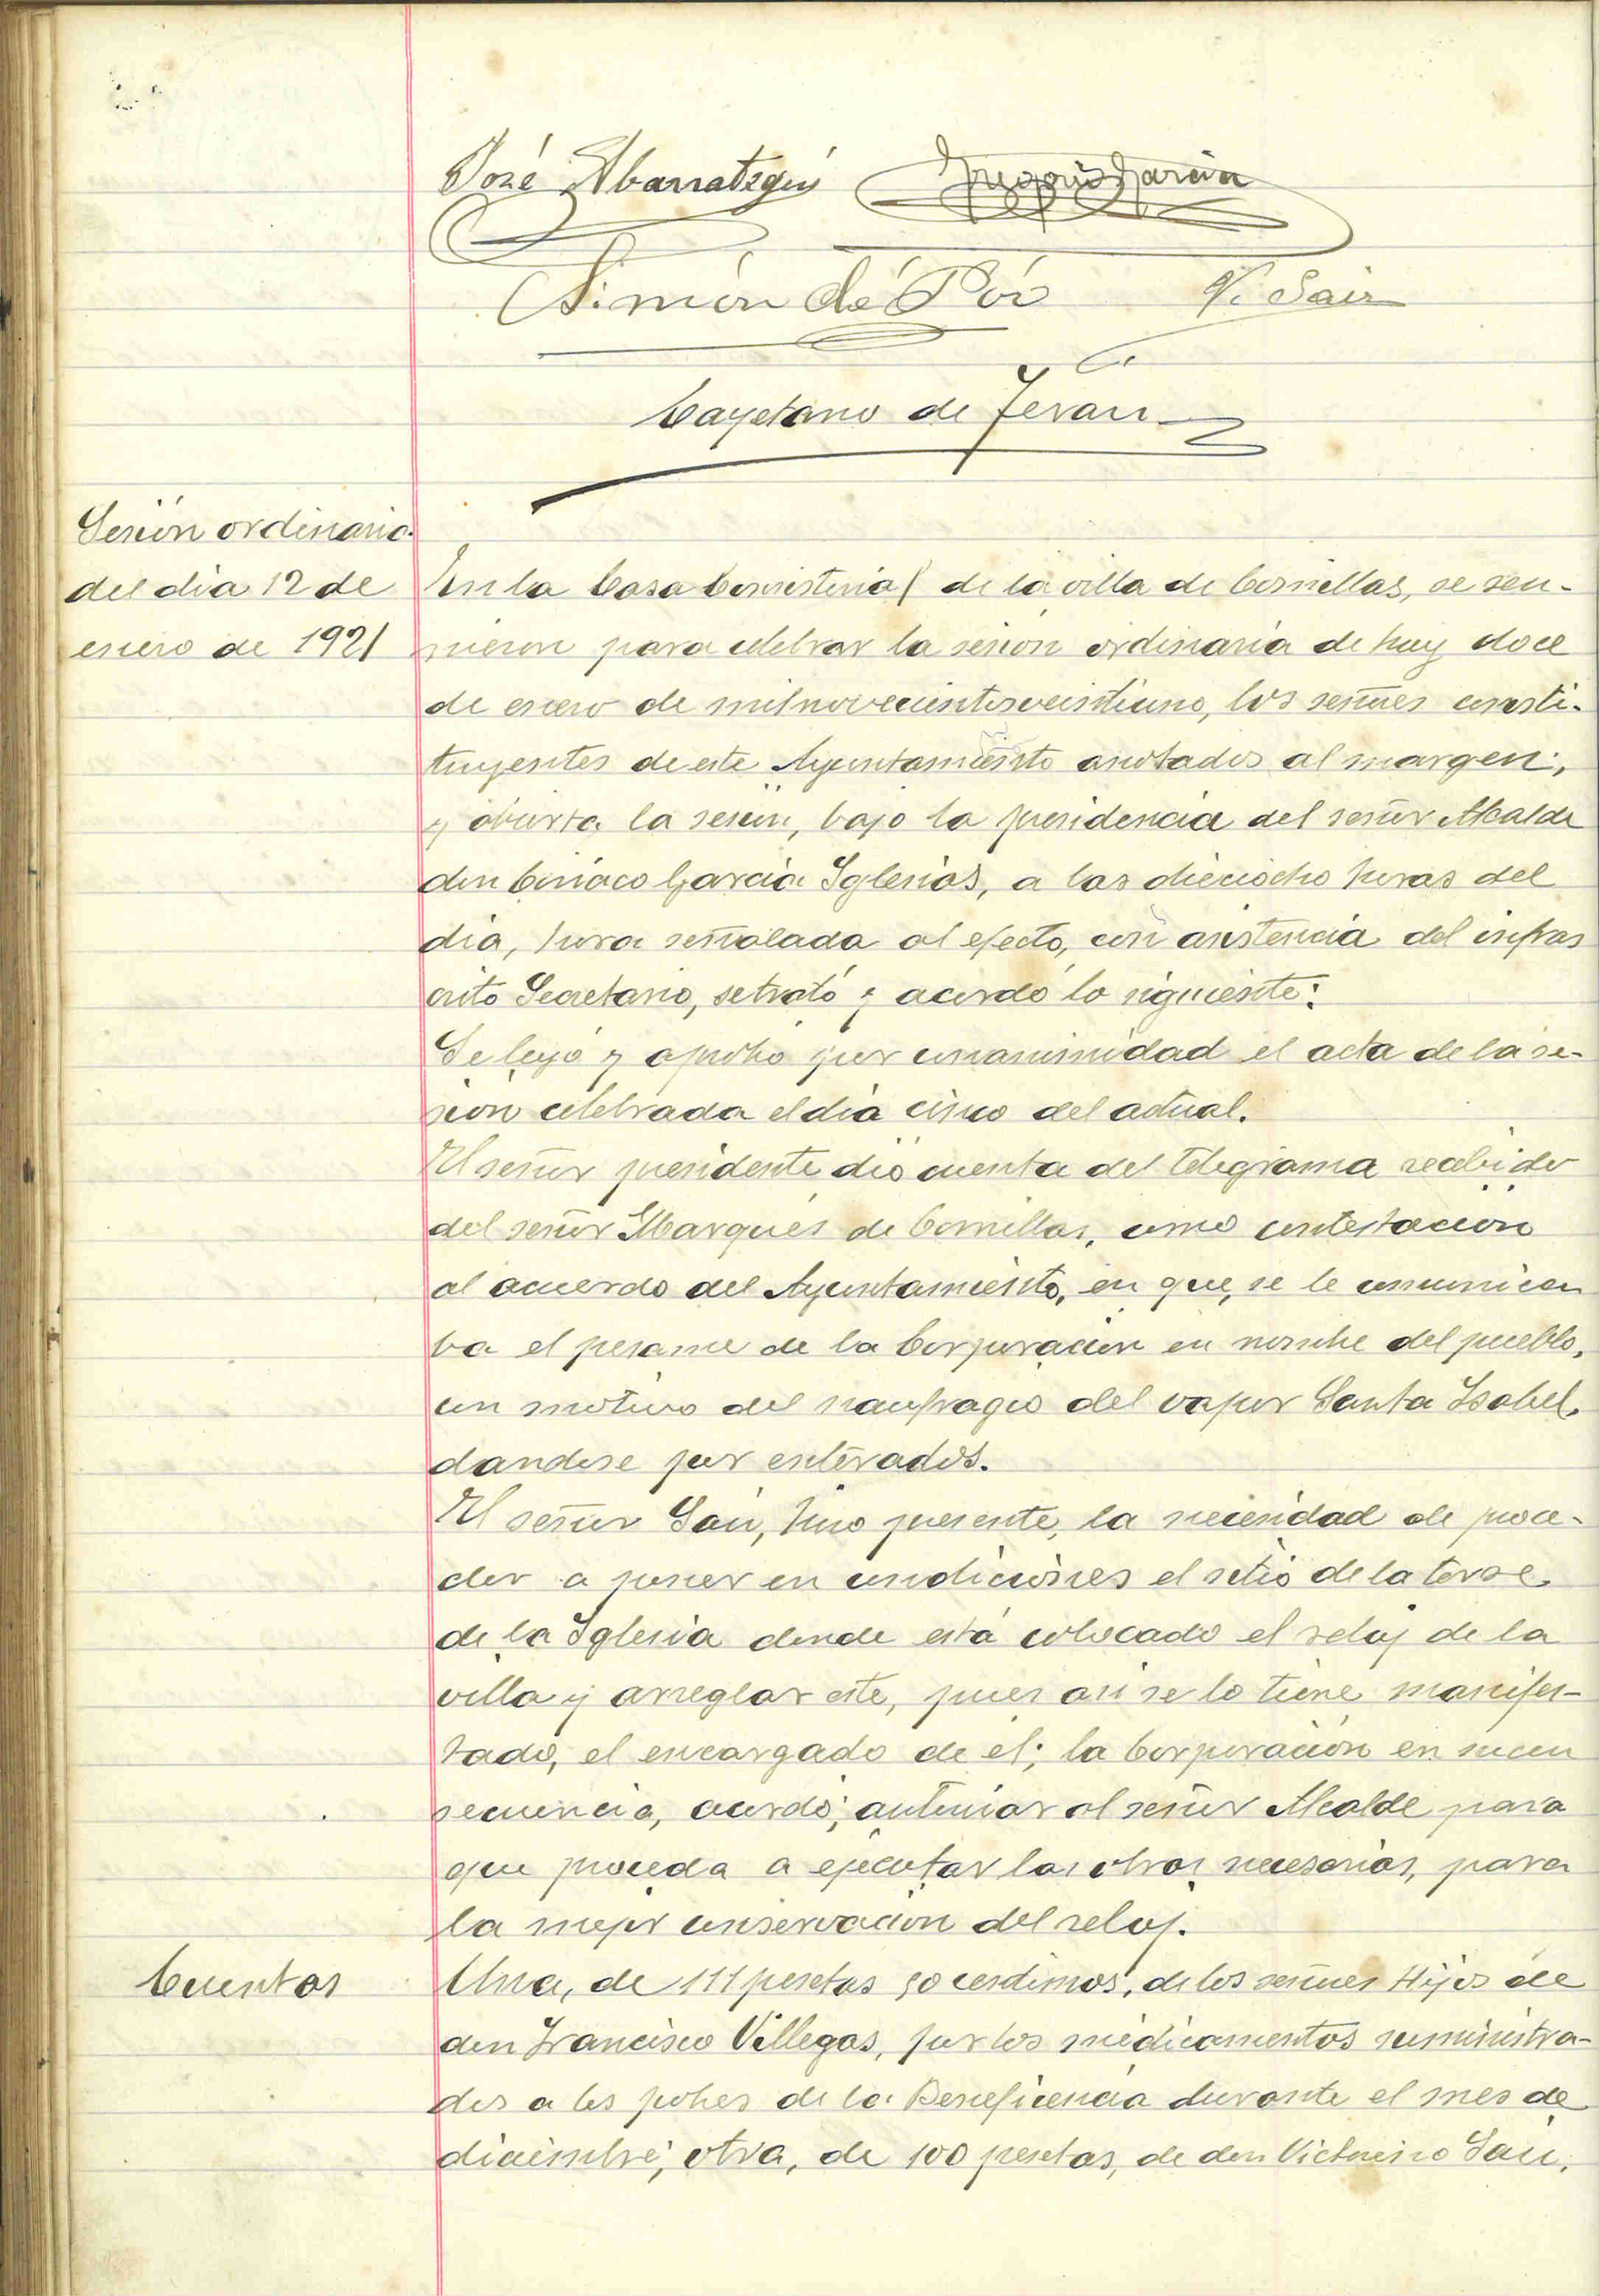 José Abarrategui Gregorio García
Simón de Pós V. Sainz
Cayetano de Terán
Sesión ordinaria
del dia 12 de
enero de 1921
En la Casa Consistorial de la villa de Comillas, se reu-
nieron para celebrar la sesión ordinaria de hoy doce
de enero de mil novecientos veintiuno, los señores consti-
tuyentes de este Ayuntamiento anotados al margen;
y abierta la sesión, bajo la presidencia del señor Alcalde
don Ciriaco García Iglesias, a las dieciocho horas del
día, hora señalada al efecto, con asistencia del infras
crito Secretario, se trató y acordó lo siguiente:
Se leyó y aprobó por unanimidad el acta de la se-
sión celebrada el día cinco del actual.
El señor presidente dió cuenta del telegrama recibido
del señor Marqués de Comillas, como contestación
al acuerdo del Ayuntamiento, en que, se le comunica
ba el pesame de la Corporación en nombre del pueblo,
con motivo del naufragio del vapor Santa Isabel,
dandose por enterados.
El señor Sainz, hizo presente, la necesidad de proce-
der a poner en condiciones el sitio de la torre
de la Iglesia donde está colocado el reloj de la
villa y arreglar este, pues asi se lo tiene manifes-
tado, el encargado de el; la Corporación en su con
secuencia, acordó, autorizar al señor Alcalde para
que proceda a ejecutar las obras necesarias, para
la mejor conservación del reloj.
Cuentas
Una, de 111 pesetas 90 centimos, de los señores Hijos de
don Francisco Villegas, por los medicamentos suministra-
dos a los pobres de la Beneficencia durante el mes de
diciembre; otra, de 100 pesetas, de don Victorino Sainz,